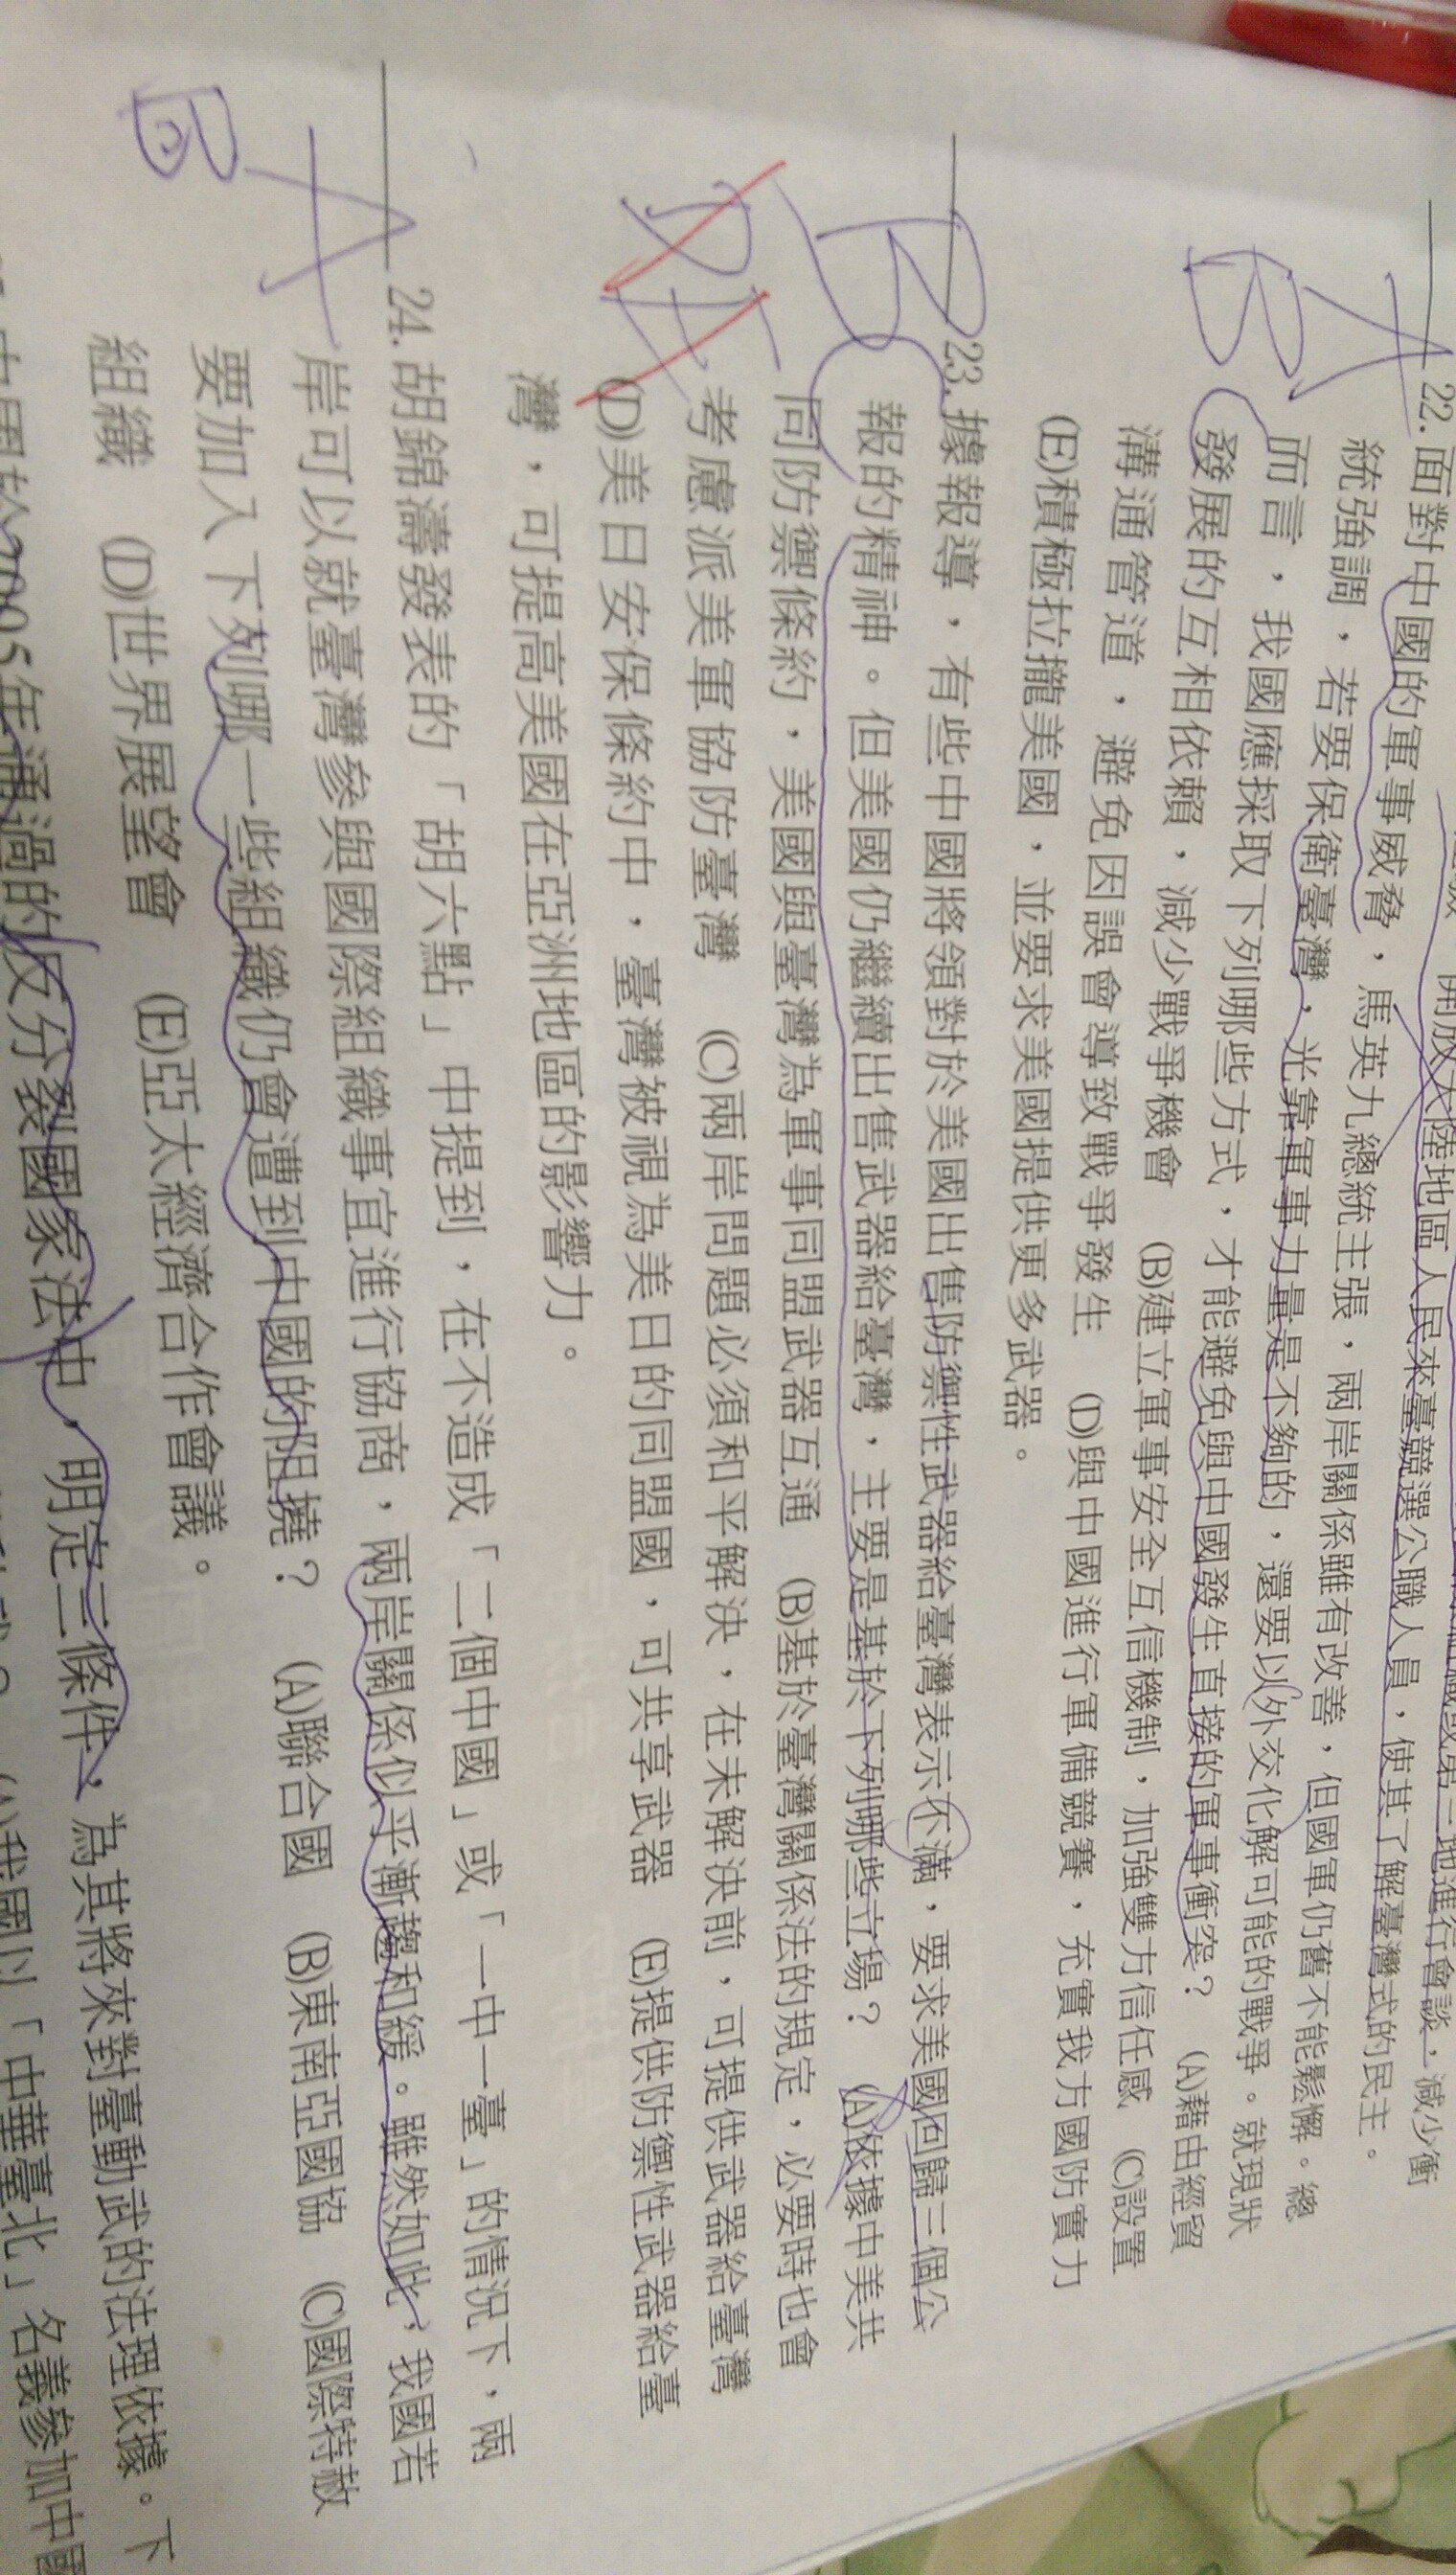 開放大陸地區人民來臺競選公職人員，使其了解臺灣式的民主。
22. 面對中國的軍事威脅，馬英九總統主張，兩岸關係雖有改善，但國軍仍舊不能鬆懈。總
統強調，若要保衛臺灣，光靠軍事力量是不夠的，還要以外交化解可能的戰爭。就現狀
而言，我國應採取下列哪些方式，才能避免與中國發生直接的軍事衝突？ (A)藉由經貿
發展的互相依賴，減少戰爭機會 (B)建立軍事安全互信機制，加強雙方信任感 (C)設置
溝通管道，避免因誤會導致戰爭發生 (D)與中國進行軍備競賽，充實我方國防實力
(E)積極拉攏美國，並要求美國提供更多武器。
A
B
23. 據報導，有些中國將領對於美國出售防禦性武器給臺灣表示不滿，要求美國回歸三個公
報的精神。但美國仍繼續出售武器給臺灣，主要是基於下列哪些立場？ (A)依據中美共
同防禦條約，美國與臺灣為軍事同盟武器互通 (B)基於臺灣關係法的規定，必要時也會
考慮派美軍協防臺灣 (C)兩岸問題必須和平解決，在未解決前，可提供武器給臺灣
(D)美日安保條約中，臺灣被視為美日的同盟國，可共享武器 (E)提供防禦性武器給臺
灣，可提高美國在亞洲地區的影響力。
B
DE
24. 胡錦濤發表的「胡六點」中提到，在不造成「二個中國」或「一中一臺」的情況下，兩
岸可以就臺灣參與國際組織事宜進行協商，兩岸關係似乎漸趨和緩。雖然如此，我國若
要加入下列哪一些組織仍會遭到中國的阻撓？ (A)聯合國 (B)東南亞國協 (C)國際特赦
組織 (D)世界展望會 (E)亞太經濟合作會議。
A
B
2005年通過的反分裂國家法中，明定三條件，為其將來對臺動武的法理依據。下
(A)我國以「中華臺北」名義參加中國